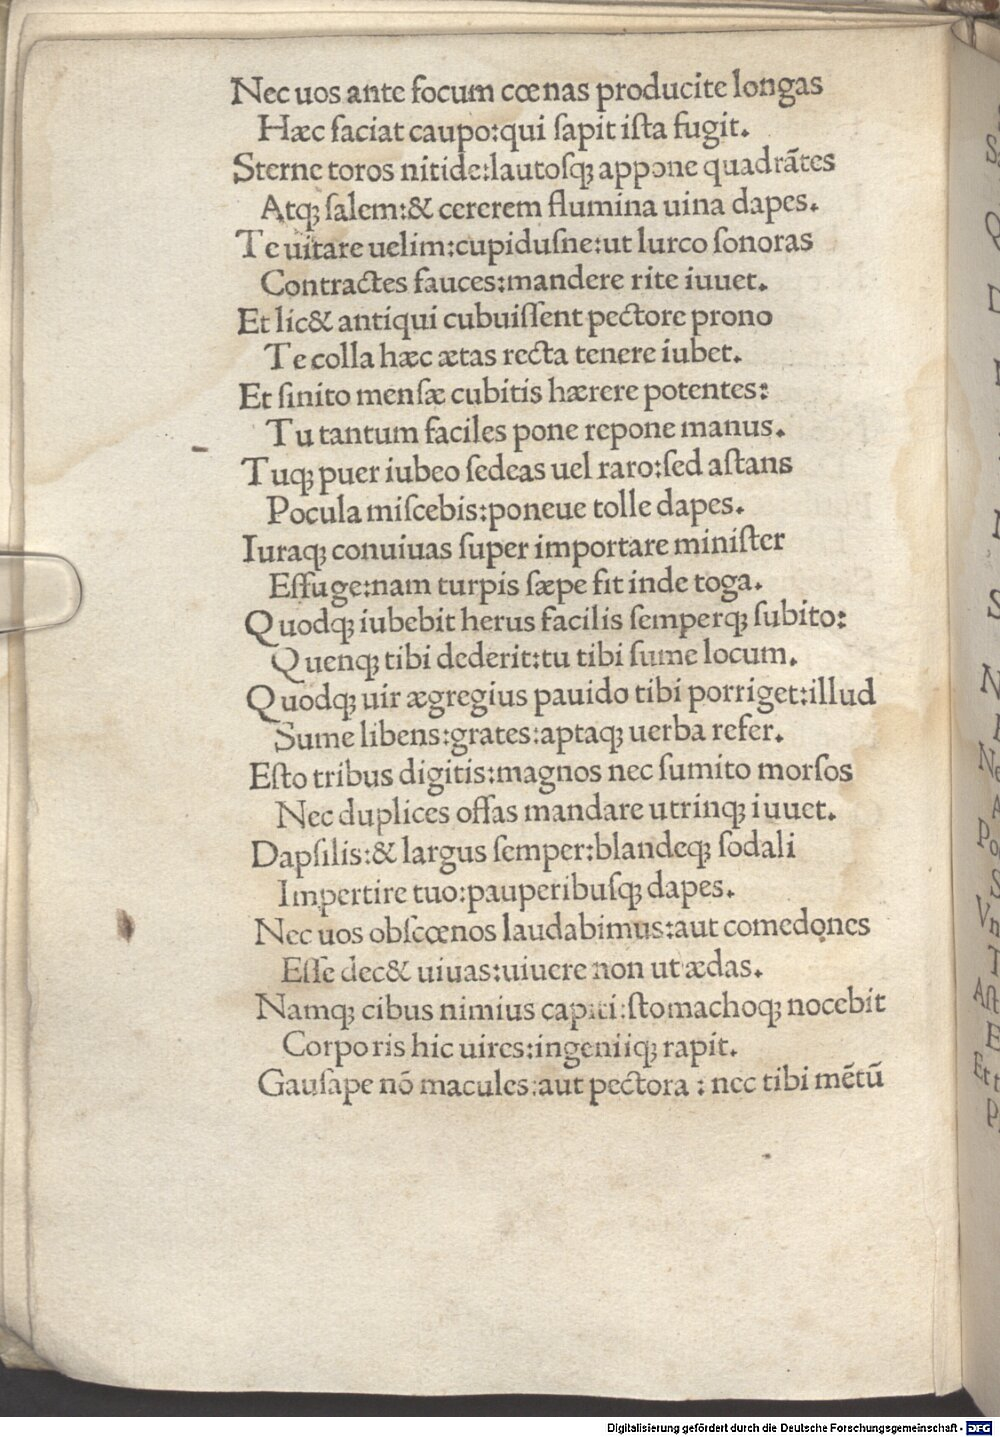 Nec uos ante focum cœnas producite longas
Hæc faciat caupo:qui ſapit iſta fugit.
Sterne toros nitide:lautoſqꝫ appone quadrãtes
Atqꝫ ſalem:& cererem flumina uina dapes.
Te uitare uelim:cupiduſne:ut lurco ſonoras
Contractes fauces:mandere rite iuuet.
Et lic& antiqui cubuiſſent pectore prono
Te colla hæc ætas recta tenere iubet.
Et ſinito menſæ cubitis hærere potentes:
Tu tantum faciles pone repone manus.
Tuqꝫ puer iubeo ſedeas uel raro:ſed aſtans
Pocula miſcebis:poneue tolle dapes.
Iuraqꝫ conuiuas ſuper importare miniſter
Effuge:nam turpis ſæpe fit inde toga.
Quodqꝫ iubebit herus facilis ſemperqꝫ ſubito:
Quenqꝫ tibi dederit:tu tibi ſume locum.
Quodqꝫ uir ægregius pauido tibi porriget:illud
Sume libens:grates:aptaqꝫ uerba refer.
Eſto tribus digitis:magnos nec ſumito morſos
Nec duplices offas mandare utrinqꝫ iuuet.
Dapſilis:& largus ſemper:blandeqꝫ ſodali
Impertire tuo:pauperibuſqꝫ dapes.
Nec uos obſcœnos laudabimus:aut comedones
Eſſe dec& uiuas:uiuere non ut ædas.
Namqꝫ cibus nimius capiti:ſtomachoqꝫ nocebit
Corporis hic uires:ingeniiqꝫ rapit.
Gauſape nõ macules:aut pectora : nec tibi mẽtũ
Digitalisierung gefördert durch die Deutsche Forschungsgemeinschaft - DFG